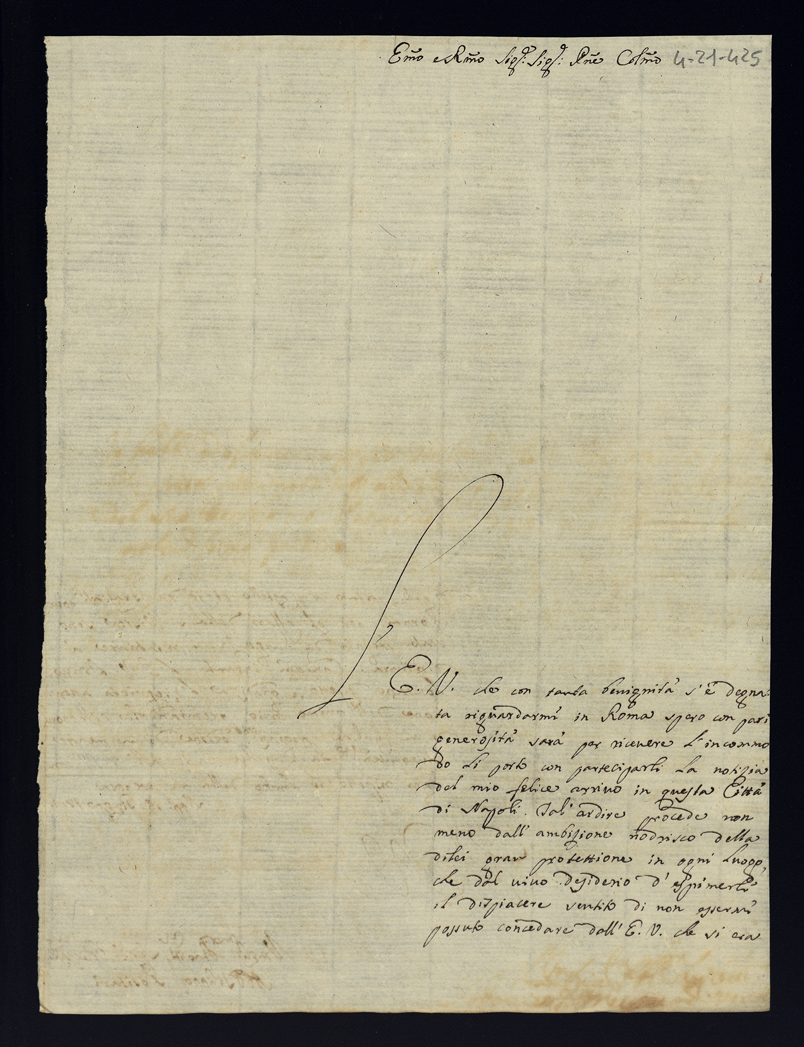 Em̃o e Rm̃o Sigr. Sigr. Pñe Colm̃o 4-21-425
L'
E. V. che con tanta benignità s'è degna-
ta riguardarmi in Roma spero con pari
generosità sarà per ricevere l'incommo
do li porto con parteciparli la notizia
del mio felice arrivo in questa Città
di Napoli. Tal'ardire procede non
meno dall'ambizione nodrisco della
dilei gran protettione in ogni luogo,
che dal vivo desiderio d'espimerli
il dispiacere sentito di non essermi
possuto concedare dall'E. V. che si era